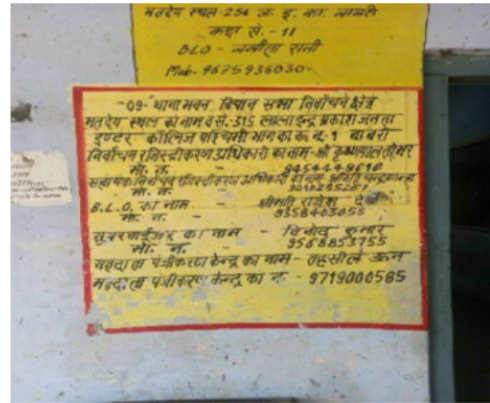 मतदेय स्थल-254 ज. इ. का. बाबरी
कक्षा सं. - 11
BLO - बबीता रानी
Mob- 9675936030-
-09- थाना भवन विधान सभा निर्वाचन क्षेत्र
मतदेय स्थल का नाम व सं.-315 लाला इन्द्र प्रकाश जनता
इण्टर कॉलिज पश्चिमी भाग क.न.-1 बाबरी
निर्वाचन रजिस्ट्रीकरण अधिकारी का नाम-श्री कृष्णपाल तोमर
मो. न. - 9454449618
सहायक निर्वाचन रजिस्ट्रीकरण अधिकारी का नाम-
मो. न. -
B.L.O. का नाम - श्रीमति राजेश
मो. न. - 9358403055
सुपरवाईजर का नाम - विनोद कुमार
मो. न. - 9568853755
मतदाता पंजीकरण केन्द्र का नाम - तहसील ऊन
मतदाता पंजीकरण केन्द्र का न. - 9719000585